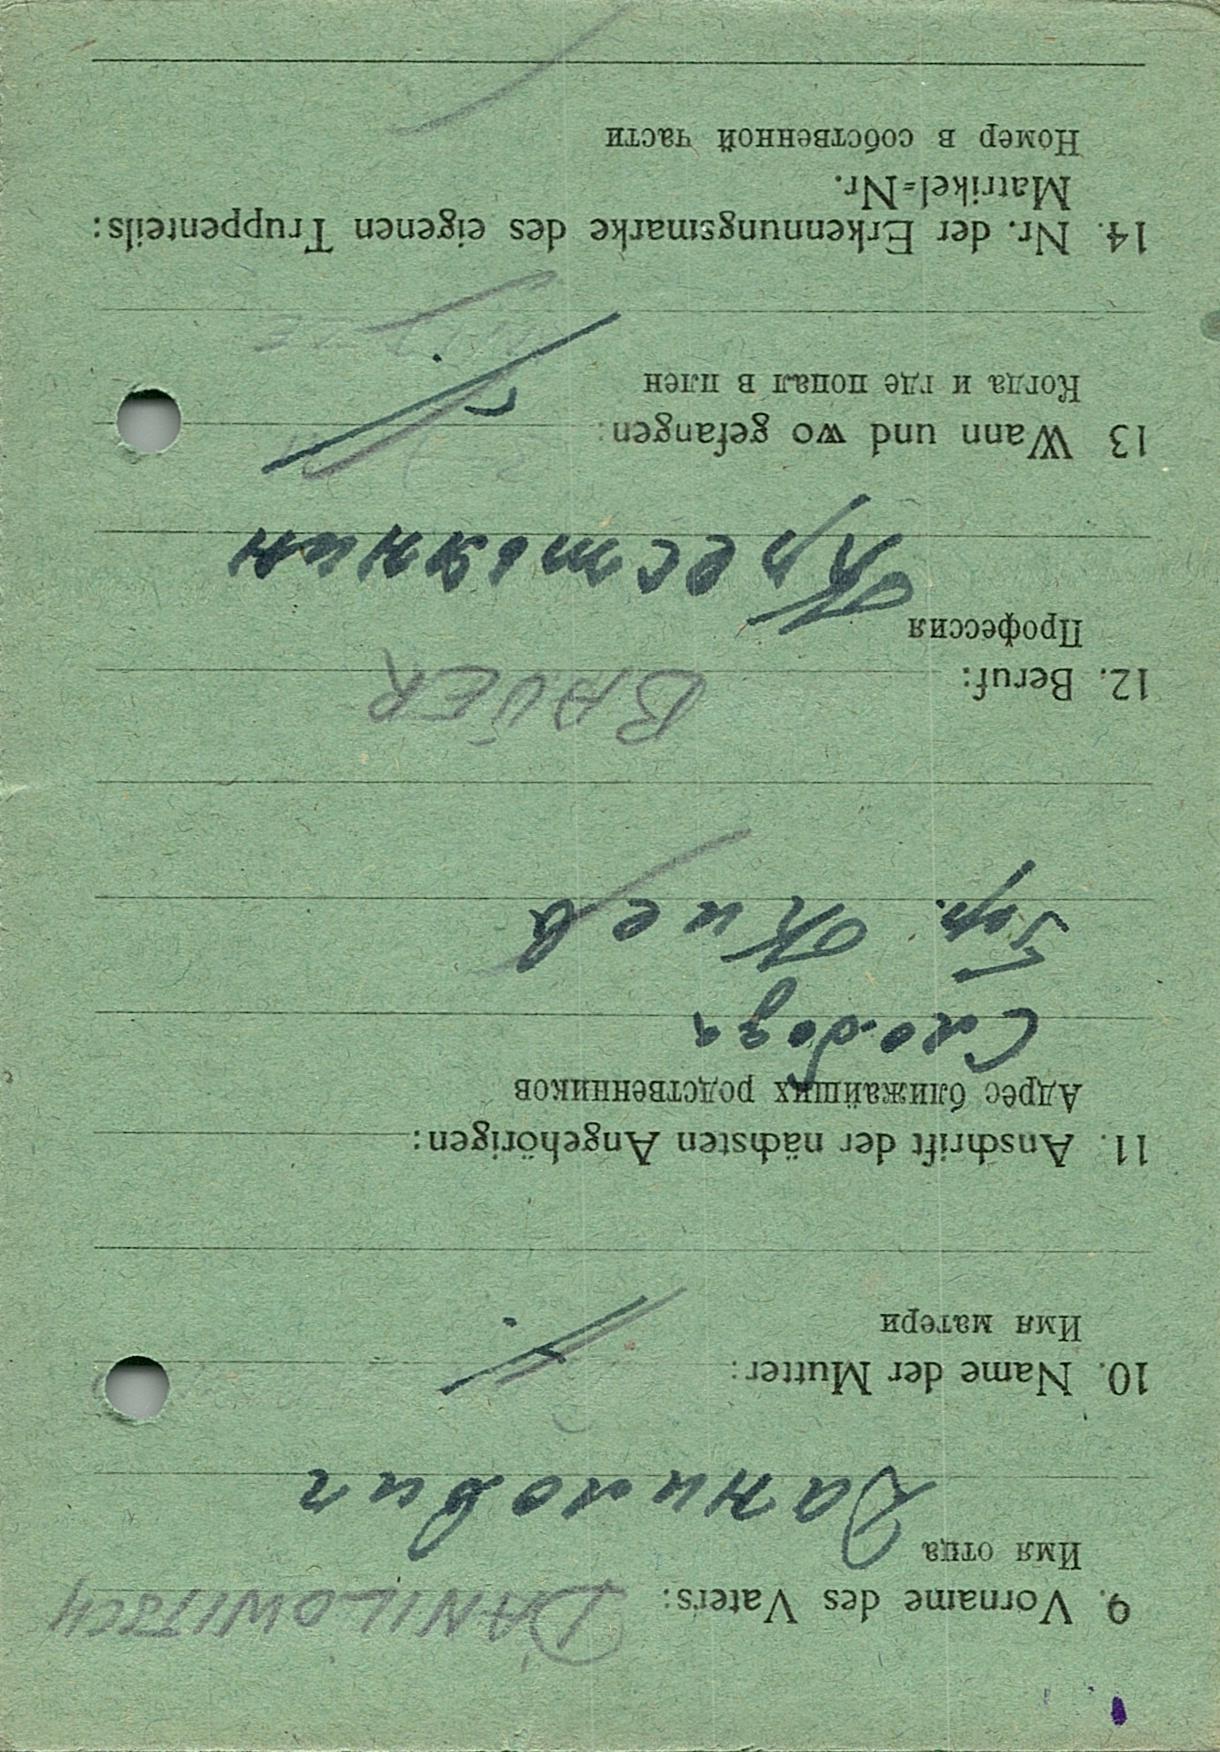 9. Vorname des Vaters: DANILOWITSCH
Имя отца Данилович
10. Name der Mutter:
Имя матери
11. Anschrift der nächsten Angehörigen:
Адрес ближайших родственников
Слобода
Гор. Киев
12. Beruf: BAUER
Профессия Крестьянин
13 Wann und wo gefangen:
Когда и где попал в плен
14. Nr. der Erkennungsmarke des eigenen Truppenteils:
Matrikel=Nr.
Номер в собственной части